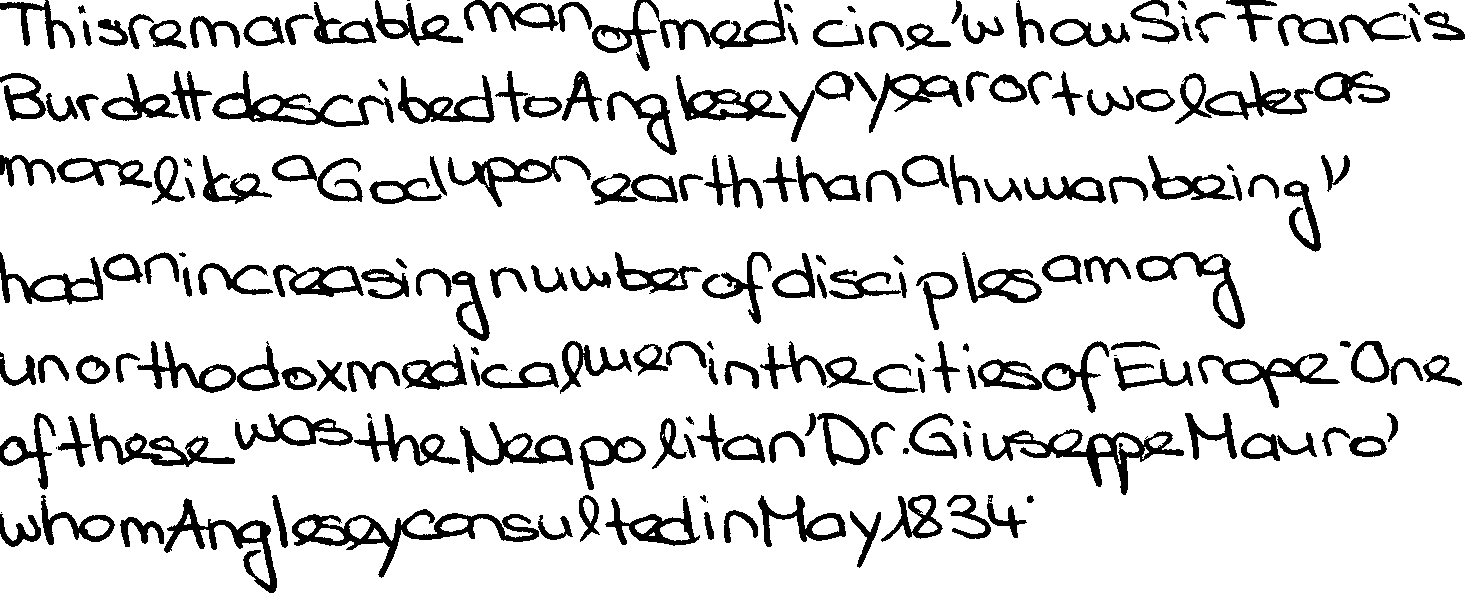 This remarkable man of medicine, whom Sir Francis
Burdett described to Anglesey a year or two later as
more like a God upon earth than a human being"
had an increasing number of disciples among
unorthodox medical men in the cities of Europe. One
of these was the Neapolitan, Dr. Giuseppe Mauro,
whom Anglesey consulted in May, 1834.